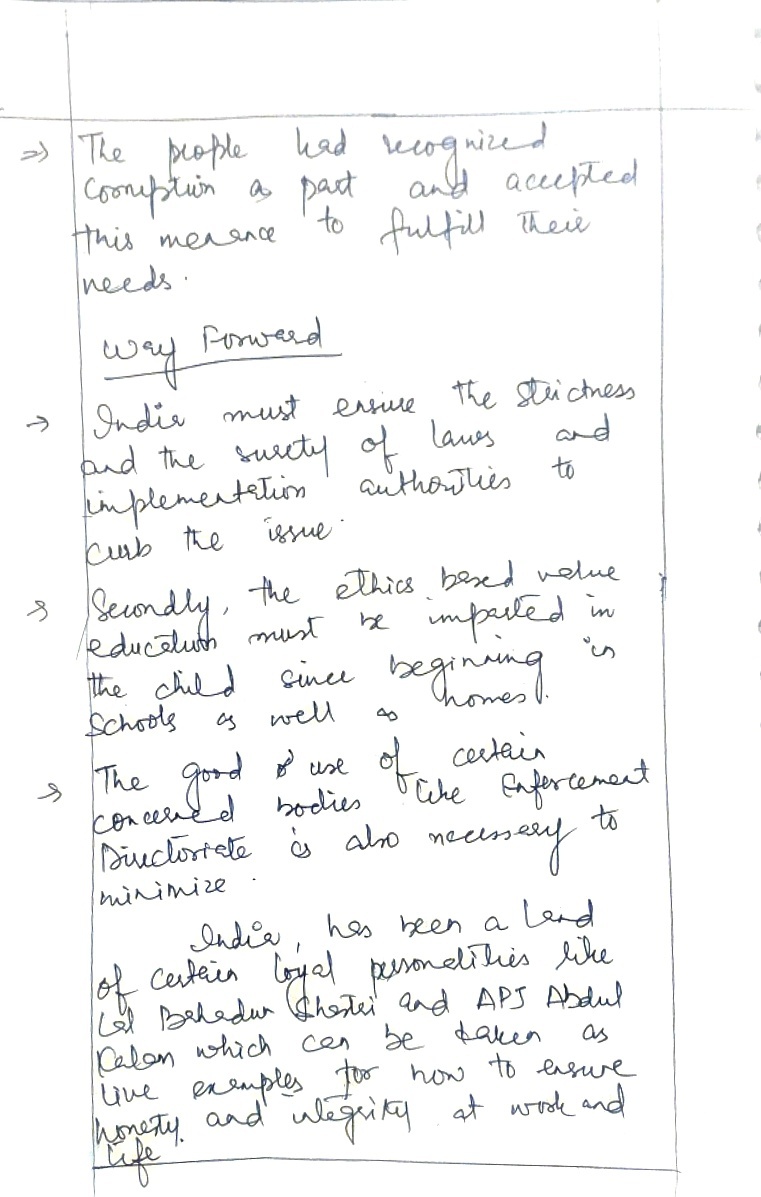 ⇒ The people had recognized
Corruption as part and accepted
this menance to fulfill their
needs.
Way Forward
→ India must ensure the strictness
and the surety of laws and
implementation authorities to
curb the issue.
→ Secondly, the ethics based value
education must be imparted in
the child since beginning in
Schools as well as homes.
→ The good use of certain
concerned bodies like Enforcement
Directorate is also necessary to
minimize.
India, has been a land
of certain loyal personalities like
Lal Bahadur Shastri and APJ Abdul
Kalam which can be taken as
live examples for how to ensure
honesty and integrity at work and
life